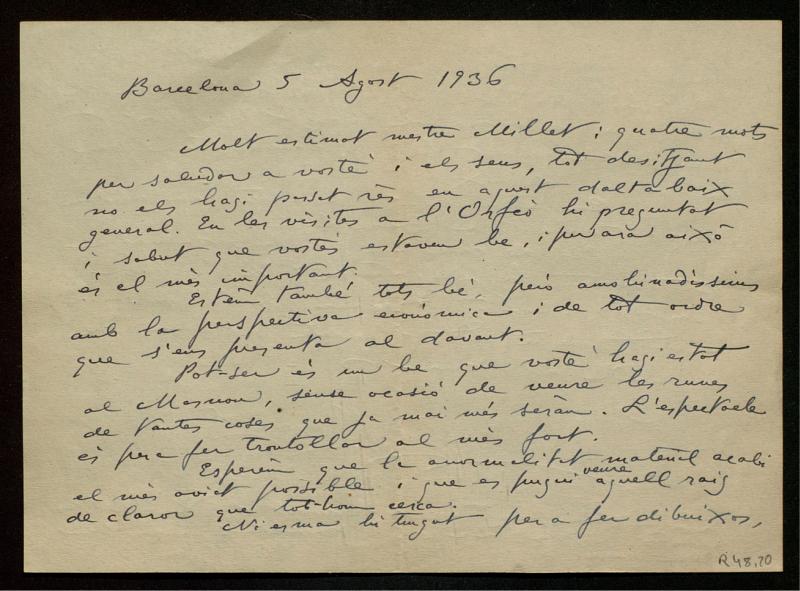 Barcelona 5 Agost 1936
Molt estimat mestre Millet; quatre mots
per saludar a vostè i els seus, tot desitjant
no els hagi passat rès en aquest daltabaix
general. En les visites a l'Orfeó hi preguntat
i sabut que vostès estaven be, i per ara això
és el mès important.
Estèm també tots bé, però amohinadíssims
amb la perspectiva econòmica i de tot ordre
que s'ens presenta al davant.
Pot-ser és un be que vostè hagi estat
al Masnou, sense ocasió de veure les runes
de tantes coses que ja mai mès seràn. L'espectacle
és per a fer trontollar al mès fort.
Esperèm que la anormalitat material acabi
el mès aviat possible i que es pugui veure aquell raig
de claror que tot-hom cerca.
Ni esma hi tingut per a fer dibuixos,
R.48,70